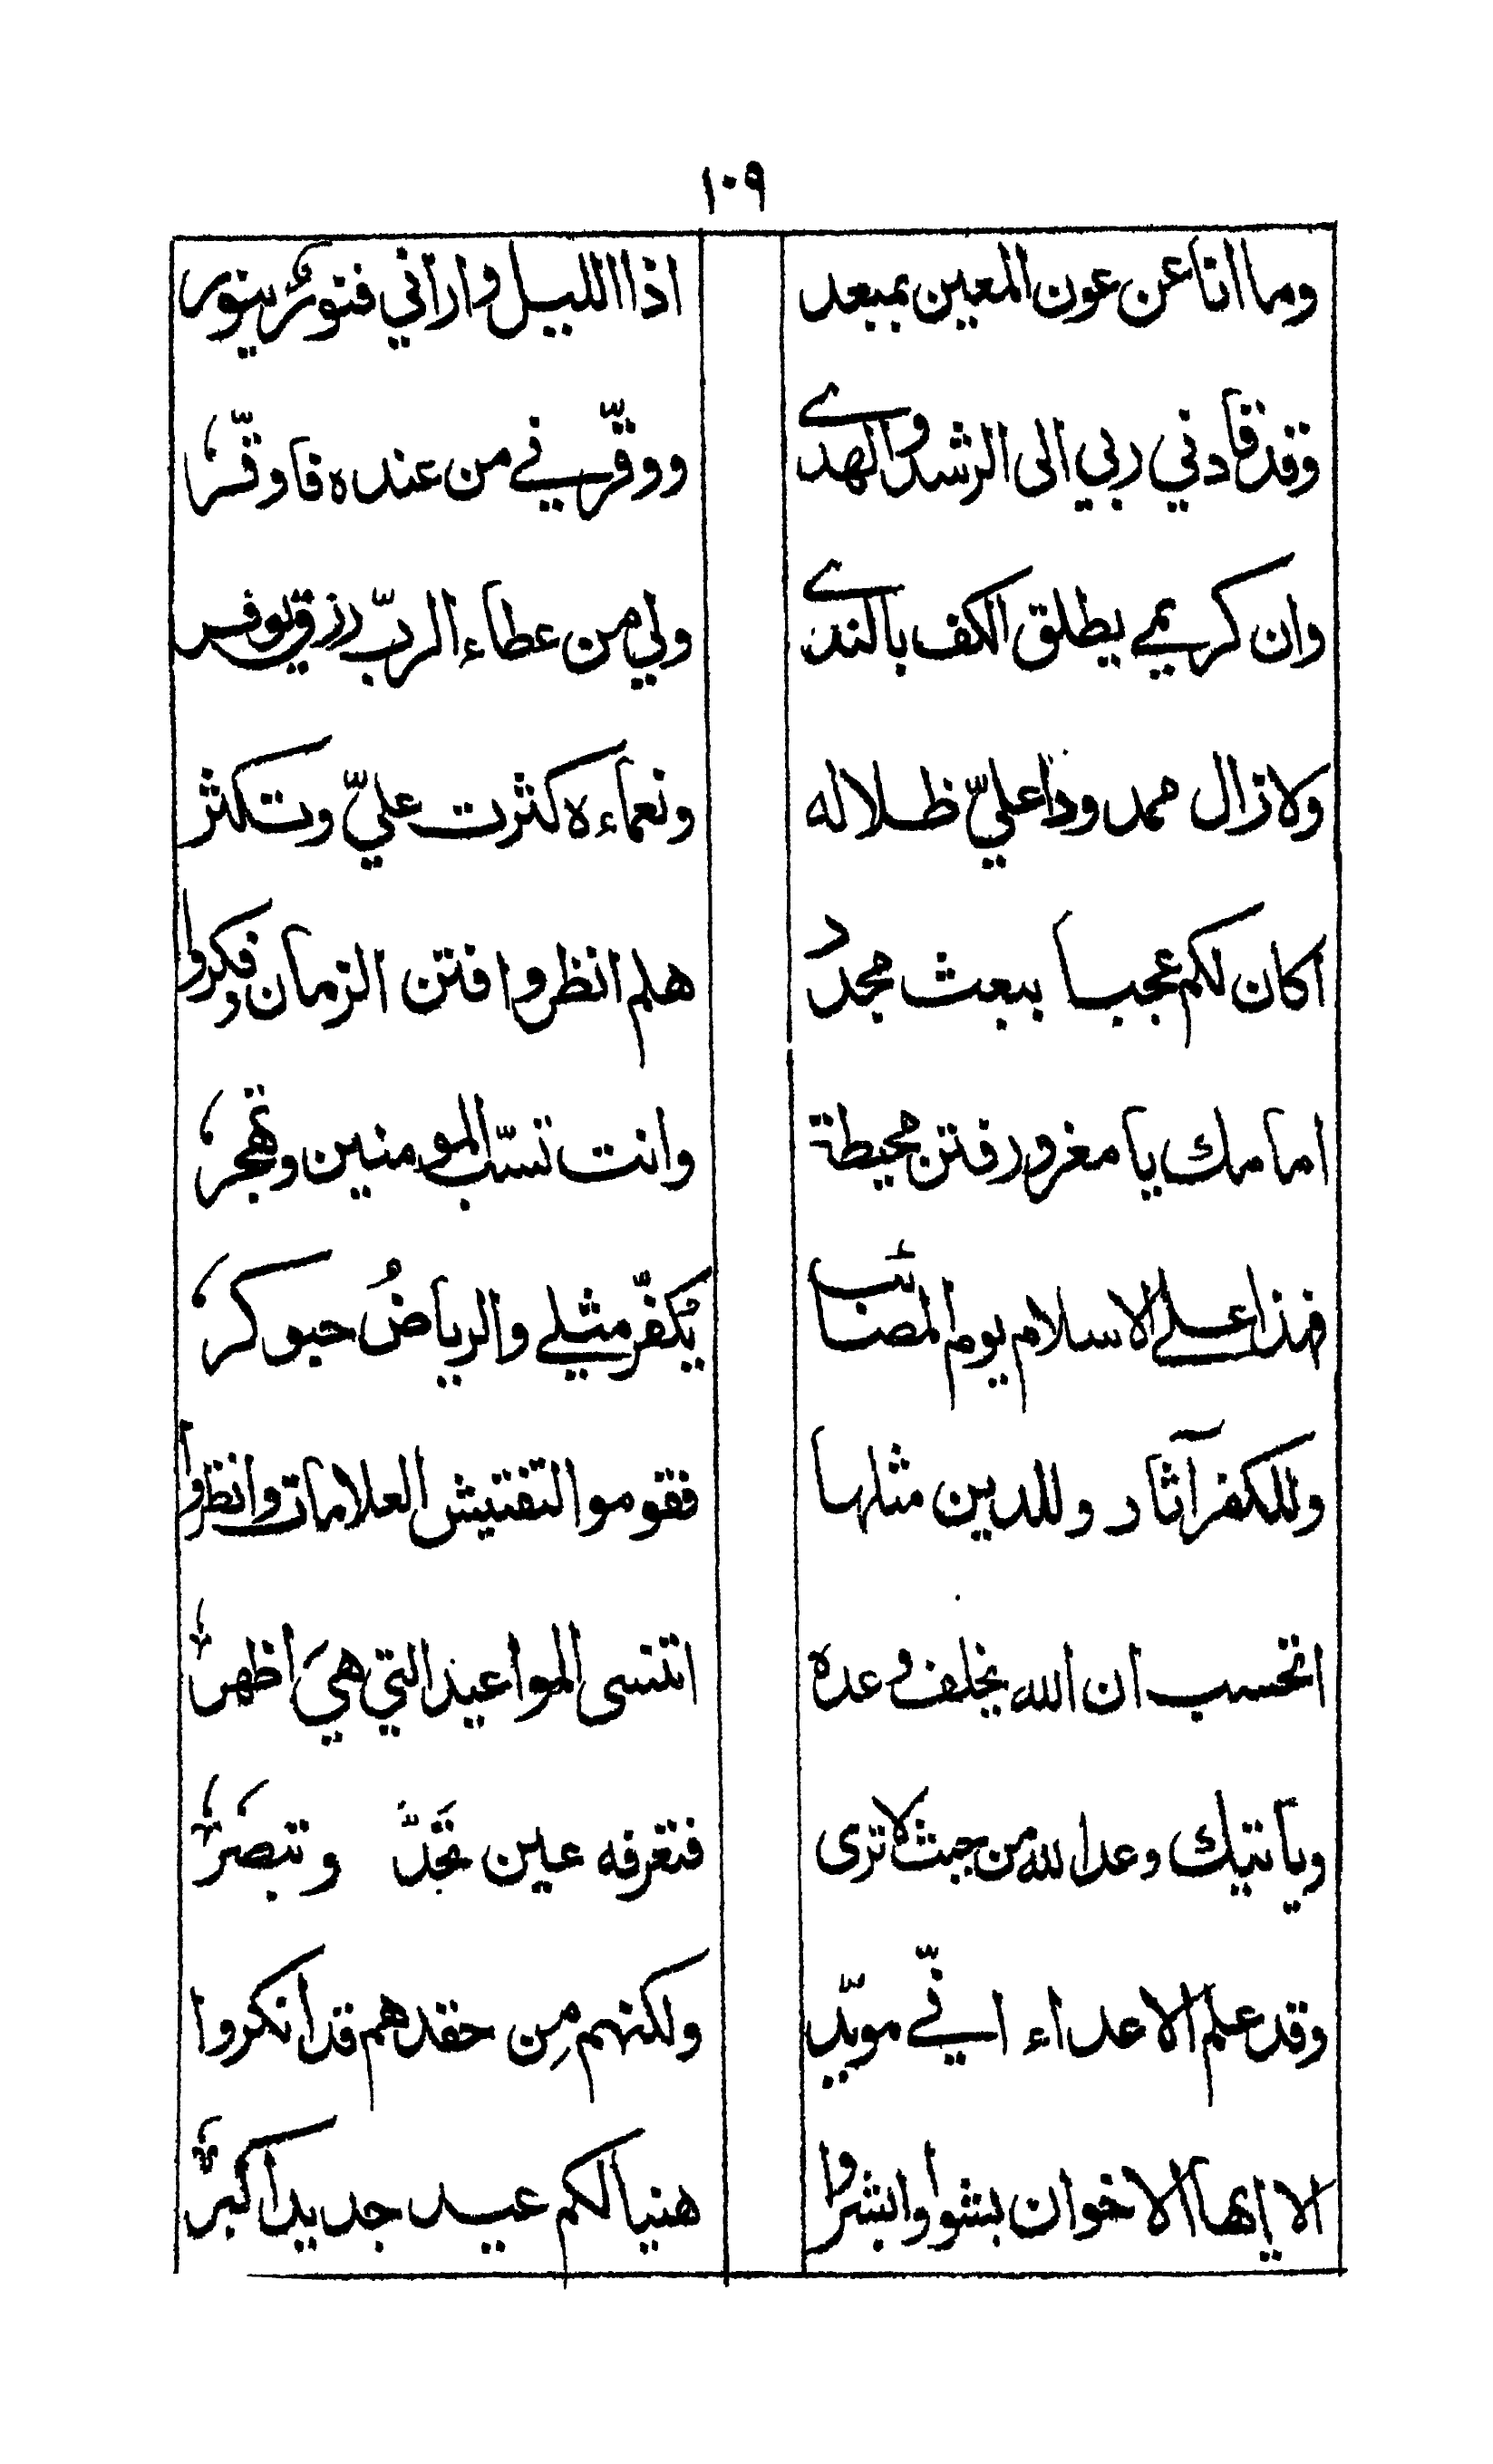 ١٠٩
وما انا عن عون المعين بمبعد اذا الليل واراني فنورٌ ينور
وقد قادني ربي الى الرشد والهدى ووقّرني من عنده فاوقّر
وان كريمي يطلق الكف بالندى ولي من عطاء الربّ رزق يوفر
ولا زال ممدودا عليّ ظلاله ونعماءه كثرت عليّ وتكثر
أكان لكم عجبا ببعث مجدد هلم انظروا فتن الزمان وفكروا
امامك يا مغرور فتن محيطة وانت تسبّ المومنين وتهجر
فهذا على الاسلام يوم المصائب يُكفّر مثلي والرياضُ حبوكر
وللكفر آثار وللدين مثلها فقوموا لتفتيش العلامات وانظروا
اتحسب ان الله يخلف وعده اتنسى المواعيد التي هي اظهر
وياتيك وعد الله من حيث لا ترى فتعرفه عين تَحُدّ وتبصر
وقد علم الاعداء اني مويّد ولكنهم مِن حقدهم قد انكروا
الا ايها الاخوان بشوا وابشروا هنيا لكم عيد جديد اكبر